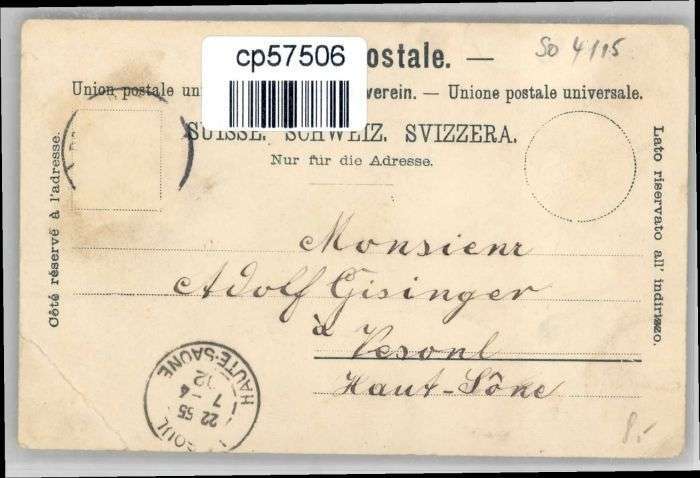 cp57506
ostale. —
So 4/15
Union postale un verein. — Unione postale universale.
SUISSE. SCHWEIZ. SVIZZERA.
Nur für die Adresse.
Côté réservé à l'adresse.
Lato riservato all' indirizzo.
Monsieur
Adolf Gisinger
à
Vesoul
Haut-Sône
HAUTE-SAONE
22 55
7 - 4
12
SOUL
8.-